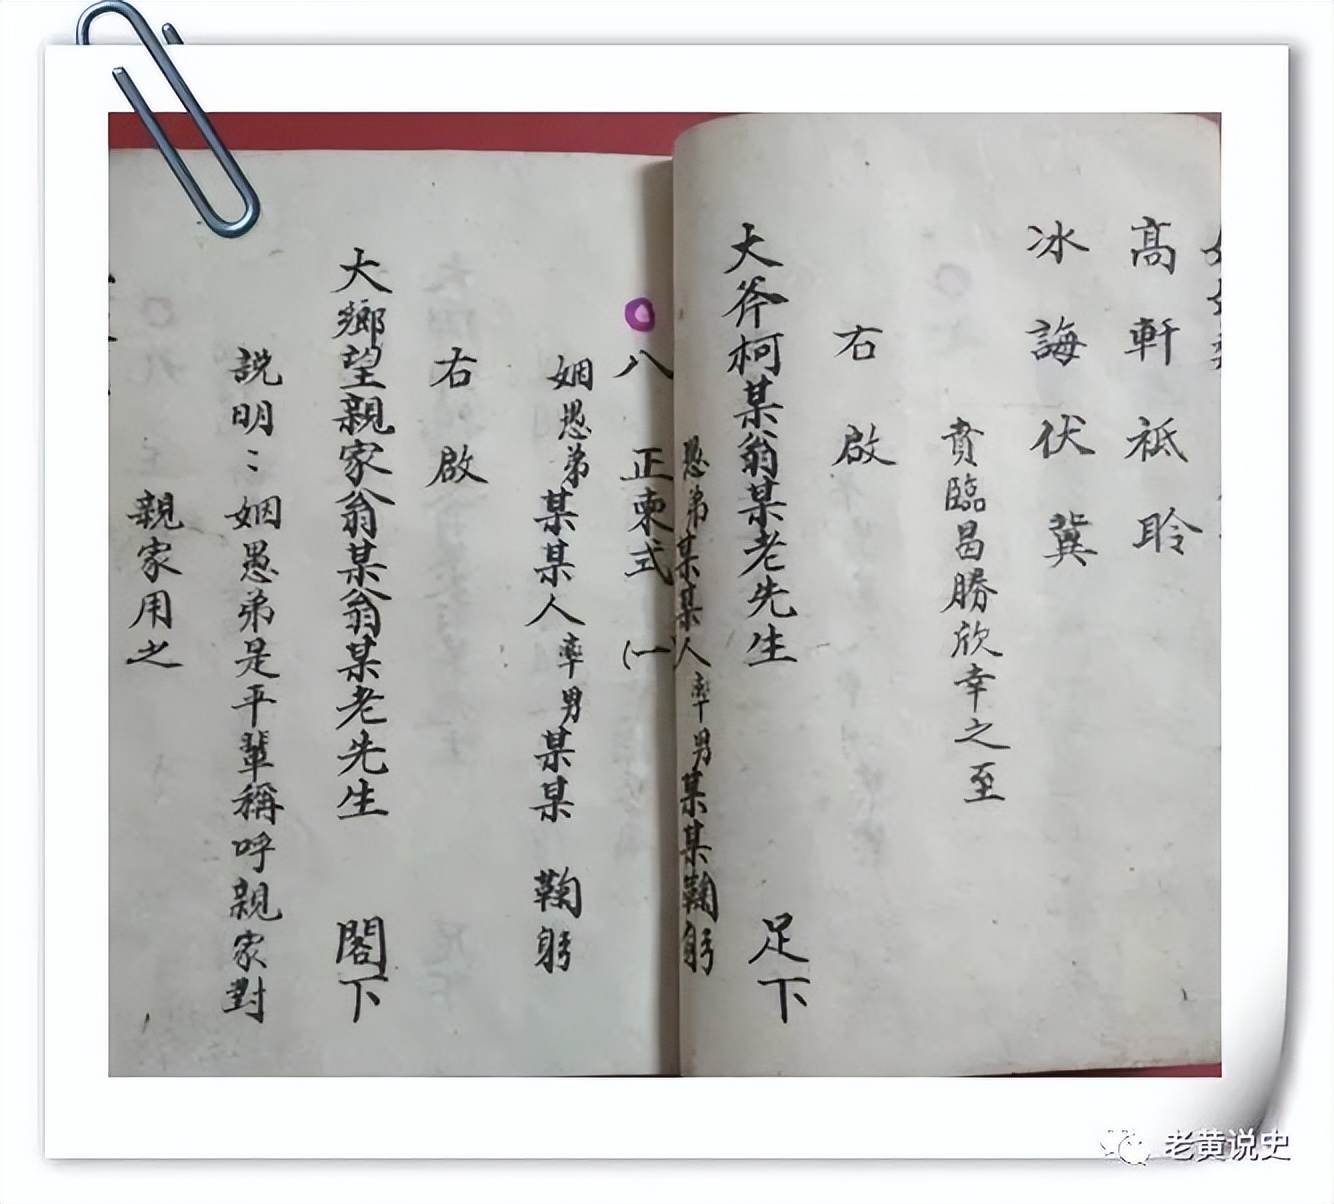 高軒祗聆
冰誨伏冀
賁臨昌勝欣幸之至
右啟
大斧柯某翁某老先生 足下
愚弟某某人率男某某鞠躬
八 正柬式 (一
姻愚弟某某人率男某某 鞠躬
右啟
大鄉望親家翁某翁某老先生 閣下
説明：姻愚弟是平輩稱呼親家對
親家用之
老黄说史